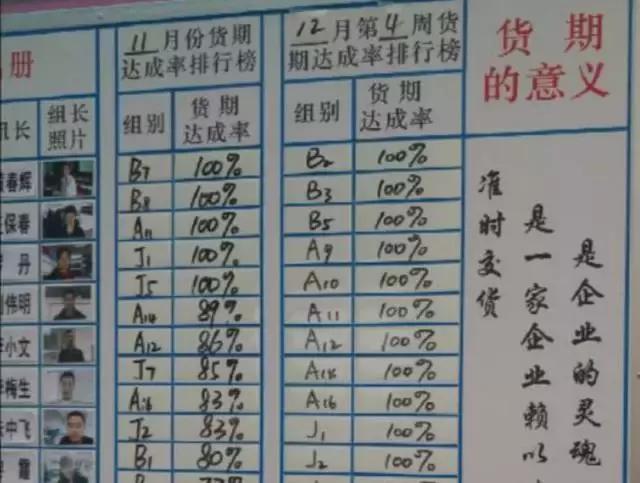 册
机长
组长
照片
春辉
保春
丹
伟明
小文
梅生
中飞
霞
11月份货期
达成率排行榜
组别 货期达成率
B7 100%
B8 100%
A11 100%
J1 100%
J5 100%
A14 89%
A12 86%
J7 85%
A16 83%
J2 83%
B1 80%
12月第4周货
期达成率排行榜
组别 货期达成率
B2 100%
B3 100%
B5 100%
A9 100%
A10 100%
A11 100%
A12 100%
A14 100%
A16 100%
J1 100%
J2 100%
货期
的意义
准时交货
是一家企业赖以
是企业的灵魂